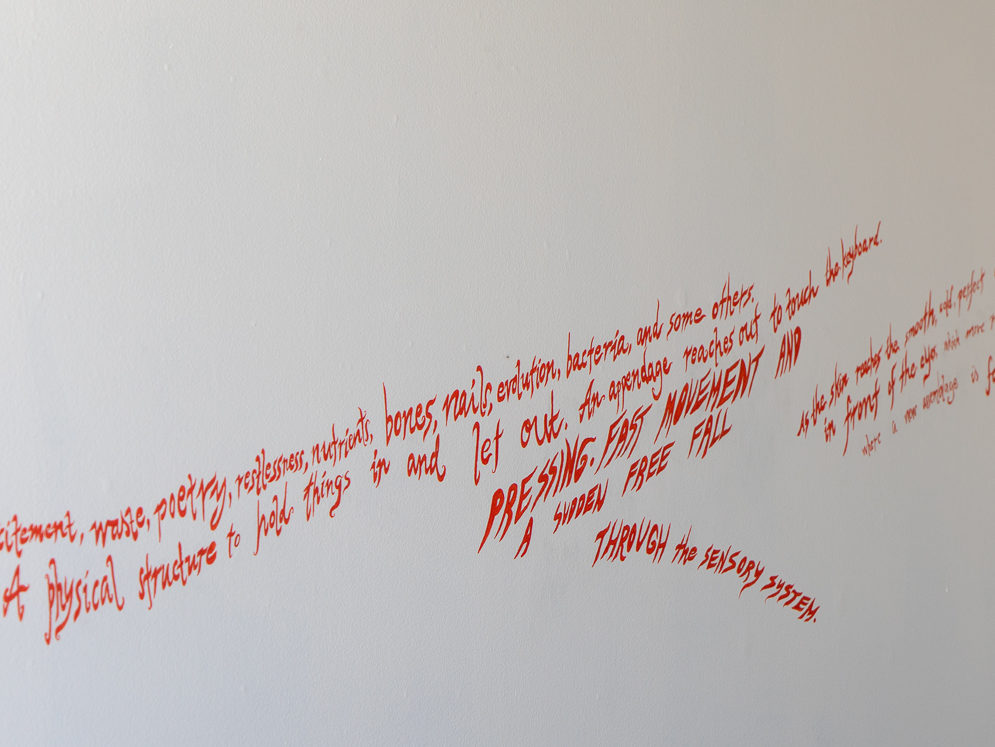 citement, waste, poetry, restlessness, nutrients, bones, nails, evolution, bacteria, and some others.
A physical structure to hold things in and let out. An appendage reaches out to touch the keyboard.
PRESSING. FAST MOVEMENT AND
A SUDDEN FREE FALL
THROUGH the SENSORY SYSTEM.
As the skin reaches the smooth, cold. perfect
in front of the eyes, which move
where a new assemblage is